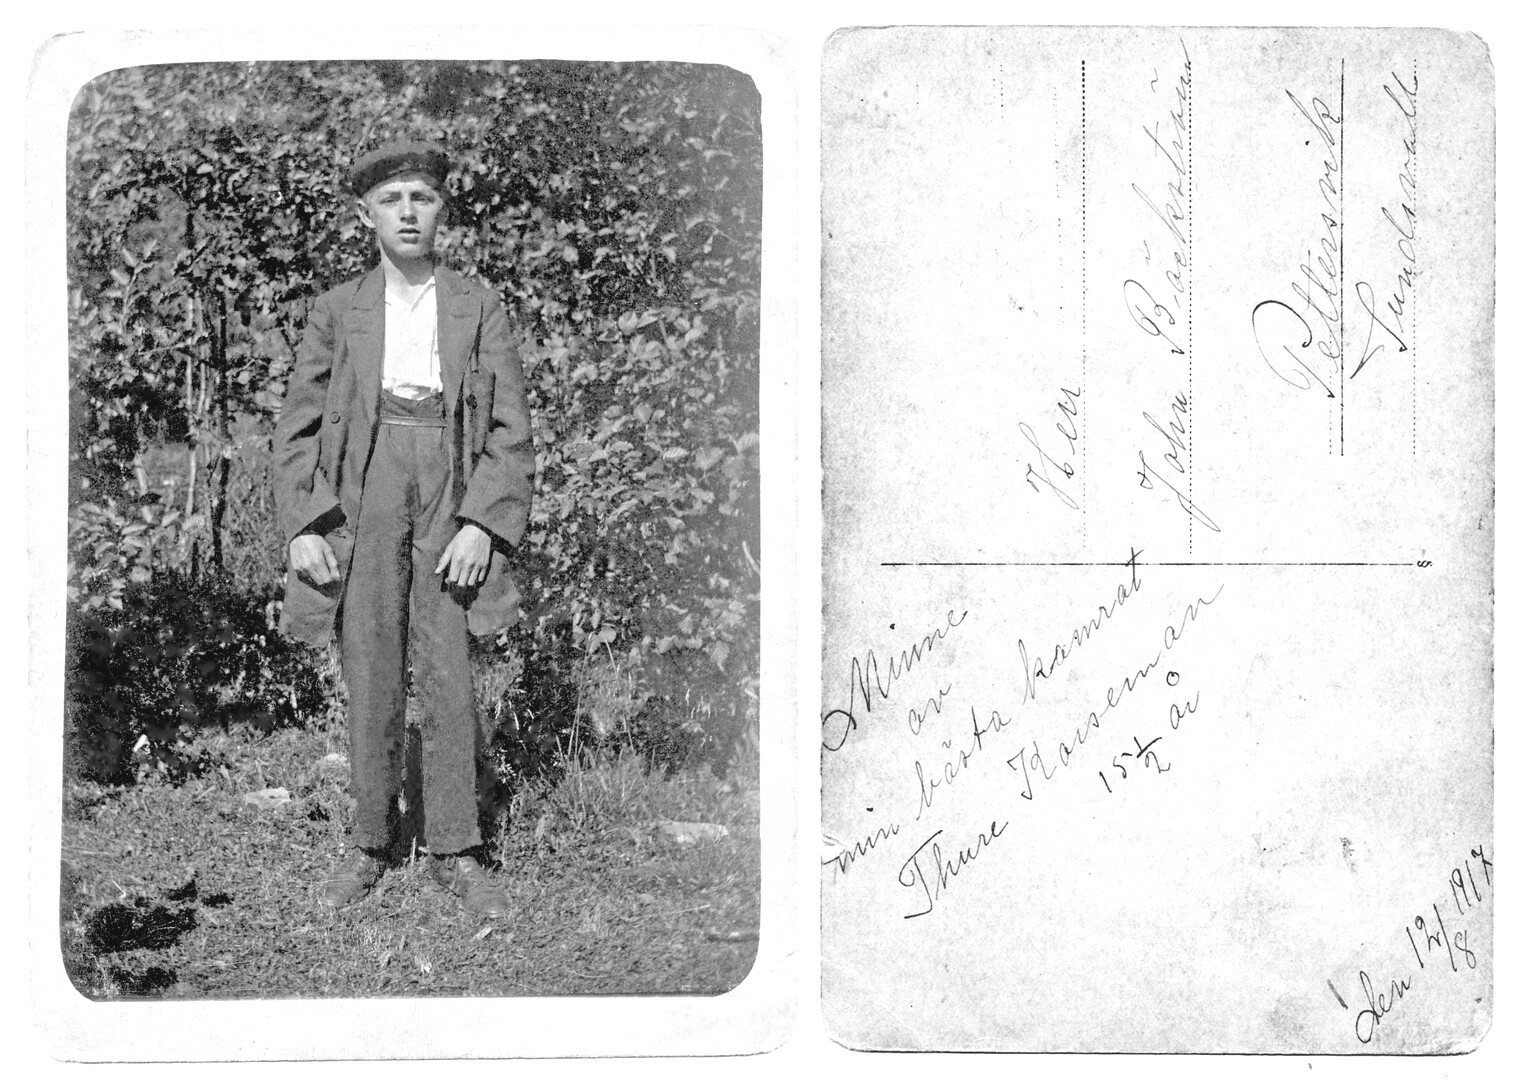 Minne
av
min bästa kamrat
Thure Norseman
15 1/2 år
Den 12/8 1917
Herr
John Bäckström
Pettersvik
Sundsvall
8